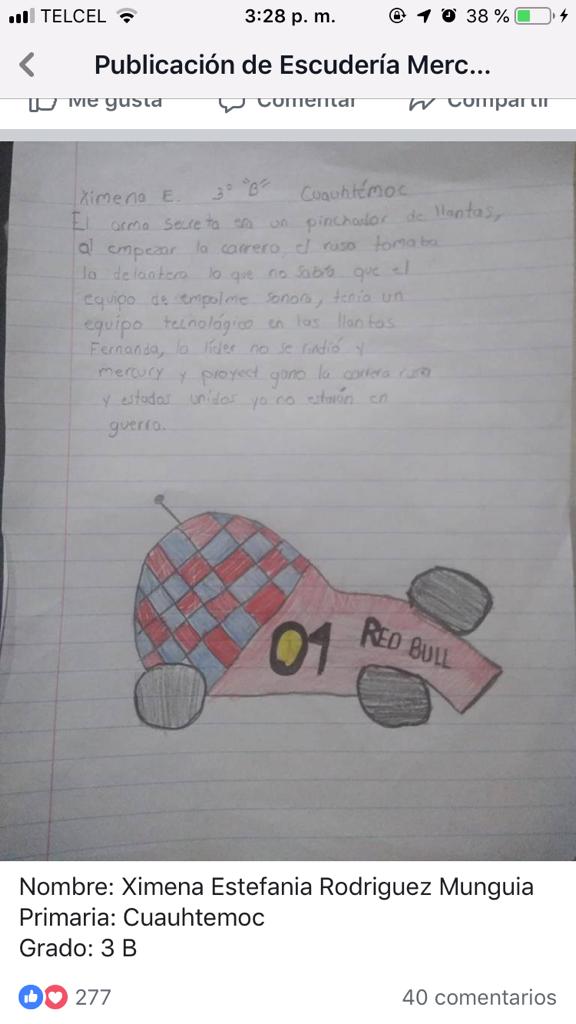 TELCEL
3:28 p. m.
38 %
Publicación de Escudería Merc...
Me gusta
Comentar
Compartir
Ximena E. 3° "B" Cuauhtémoc
El arma secreta era un pinchador de llantas,
al empezar la carrera, el ruso tomaba
la delantera lo que no sabía que el
equipo de empalme sonora, tenía un
equipo tecnológico en las llantas
Fernanda, la líder no se rindió y
mercury y proyect gano la carrera rusa
y estados unidos ya no estarón en
guerra.
01
RED BULL
Nombre: Ximena Estefania Rodriguez Munguia
Primaria: Cuauhtemoc
Grado: 3 B
277
40 comentarios